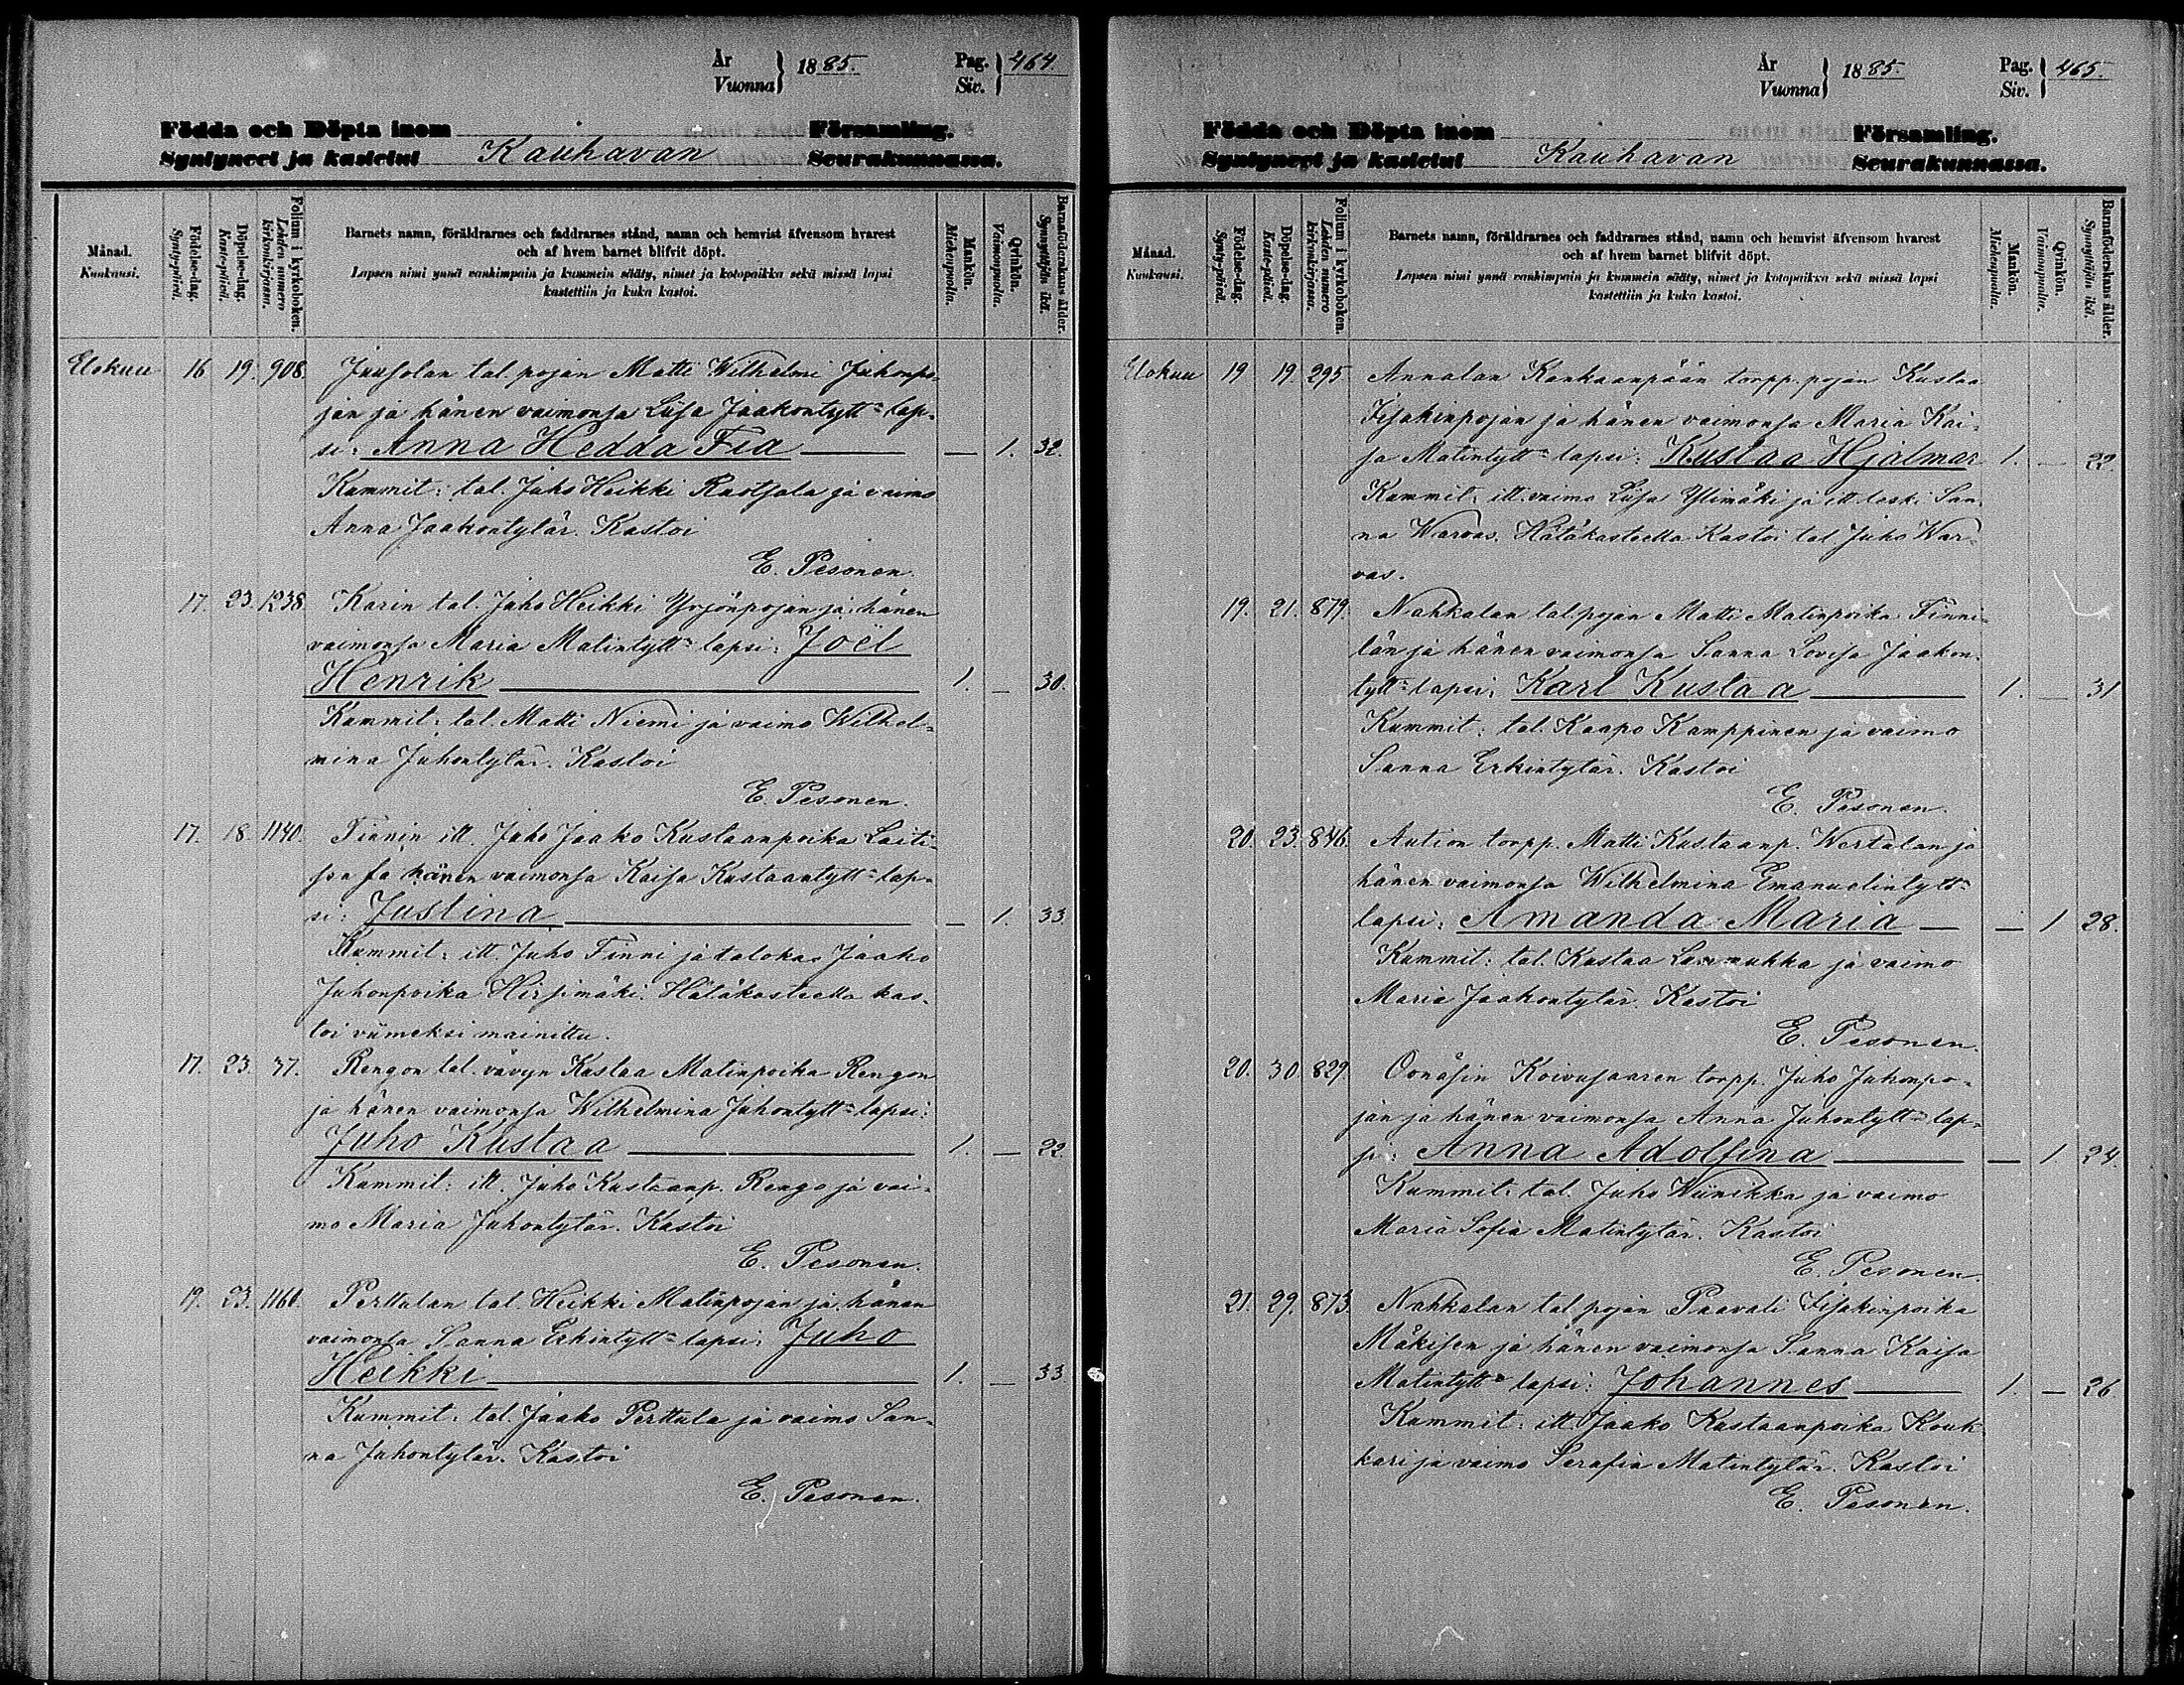 År
Vuonna
1885.
Pag.
Siv.
464.
Födda och Döpta inom Församling.
Syntyneet ja kastetut Kauhavan Seurakunnassa.
Månad.
Kuukausi.
Födelse-dag.
Synty-päivä.
Döpelse-dag.
Kaste-päivä.
Folium i kyrkoboken.
Lehden numero kirkonkirjassa.
Barnets namn, föräldrarnes och faddrarnes stånd, namn och hemvist äfvensom hvarest
och af hvem barnet blifvit döpt.
Lapsen nimi ynnä vanhimpain ja kummein sääty, nimet ja kotopaikka sekä missä lapsi
kastettiin ja kuka kastoi.
Mankön.
Miehenpuolia.
Qvinkön.
Vaimonpuolia.
Barnaföderskans ålder.
Synnyttäjän ikä.
Elokuu 16 19. 908. Juusolan tal. pojan Matti Wilhelmi Juhonpo-
jan ja hänen vaimonsa Liisa Jaakontytt= lap-
si: Anna Hedda Fia — 1. 32.
Kummit: tal. Juho Heikki Ruotsala ja vaimo
Anna Jaakontytär. Kastoi
E. Pesonen.
17. 23. 1238. Karin tal. Juho Heikki Yrjönpojan ja hänen
vaimonsa Maria Matintytt= lapsi: Joël
Henrik 1. — 30.
Kummit: tal. Matti Niemi ja vaimo Wilhel-
mina Juhontytär. Kastoi
E. Pesonen.
17. 18. 1140. Finnin itt. Juho Jaako Kustaanpoika Laiti-
sen ja hänen vaimonsa Kaisa Kustaantytt= lap-
si: Justina — 1. 33.
Kummit: itt. Juho Finni ja talokas Jaako
Juhonpoika Hirsimäki. Hätäkasteella kas-
toi viimeksi mainittu.
17. 23. 37. Rengon tal. vävyn Kustaa Matinpoika Rengon
ja hänen vaimonsa Wilhelmina Juhontytt= lapsi:
Juho Kustaa 1. — 22.
Kummit: itt. Juho Kustaanp. Rengo ja vai-
mo Maria Juhontytär. Kastoi
E. Pesonen.
19. 23. 1160. Perttulan tal. Heikki Matinpojan ja hänen
vaimonsa Sanna Erkintytt= lapsi: Juho
Heikki 1. — 33.
Kummit: tal. Jaako Perttula ja vaimo San-
na Juhontytär. Kastoi
E. Pesonen.
År
Vuonna
1885.
Pag.
Siv.
465.
Födda och Döpta inom Församling.
Syntyneet ja kastetut Kauhavan Seurakunnassa.
Månad.
Kuukausi.
Födelse-dag.
Synty-päivä.
Döpelse-dag.
Kaste-päivä.
Folium i kyrkoboken.
Lehden numero kirkonkirjassa.
Barnets namn, föräldrarnes och faddrarnes stånd, namn och hemvist äfvensom hvarest
och af hvem barnet blifvit döpt.
Lapsen nimi ynnä vanhimpain ja kummein sääty, nimet ja kotopaikka sekä missä lapsi
kastettiin ja kuka kastoi.
Mankön.
Miehenpuolia.
Qvinkön.
Vaimonpuolia.
Barnaföderskans ålder.
Synnyttäjän ikä.
Elokuu 19 19. 295. Annalan Kankaanpään torpp. pojan Kustaa
Iisakinpojan ja hänen vaimonsa Maria Kai-
sa Matintytt= lapsi: Kustaa Hjalmar 1. — 22.
Kummit: itt. vaimo Liisa Ylimäki ja itt. leski San-
na Warvas. Hätäkasteella Kastoi tal. Juho War-
vas.
19. 21. 879. Nahkalan tal. pojan Matti Matinpoika Finni-
län ja hänen vaimonsa Sanna Lovisa Jaakon-
tytt= lapsi: Karl Kustaa 1. — 31
Kummit: tal. Kaapo Kamppinen ja vaimo
Sanna Erkintytär. Kastoi
E. Pesonen.
20. 23. 846. Aution torpp. Matti Kustaanp. Wertalan ja
hänen vaimonsa Wilhelmina Emanuelintytt=
lapsi: Amanda Maria — 1 28.
Kummit: tal. Kustaa ja vaimo
Maria Jaakontytär. Kastoi
E. Pesonen.
20. 30. 829. Koivusaaren torpp. Juho Juhonpo-
jan ja hänen vaimonsa Anna Juhontytt= lap-
si: Anna Adolfina — 1. 24.
Kummit: tal. Juho Wiinikka ja vaimo
Maria Sofia Matintytär. Kastoi
E. Pesonen.
21. 29. 873. Nahkalan tal. pojan Paavali Iisakinpoika
Mäkisen ja hänen vaimonsa Sanna Kaisa
Matintytt= lapsi: Johannes 1. — 26.
Kummit: itt. Jaako Kustaanpoika Kouk-
kari ja vaimo Serafia Matintytär. Kastoi
E. Pesonen.